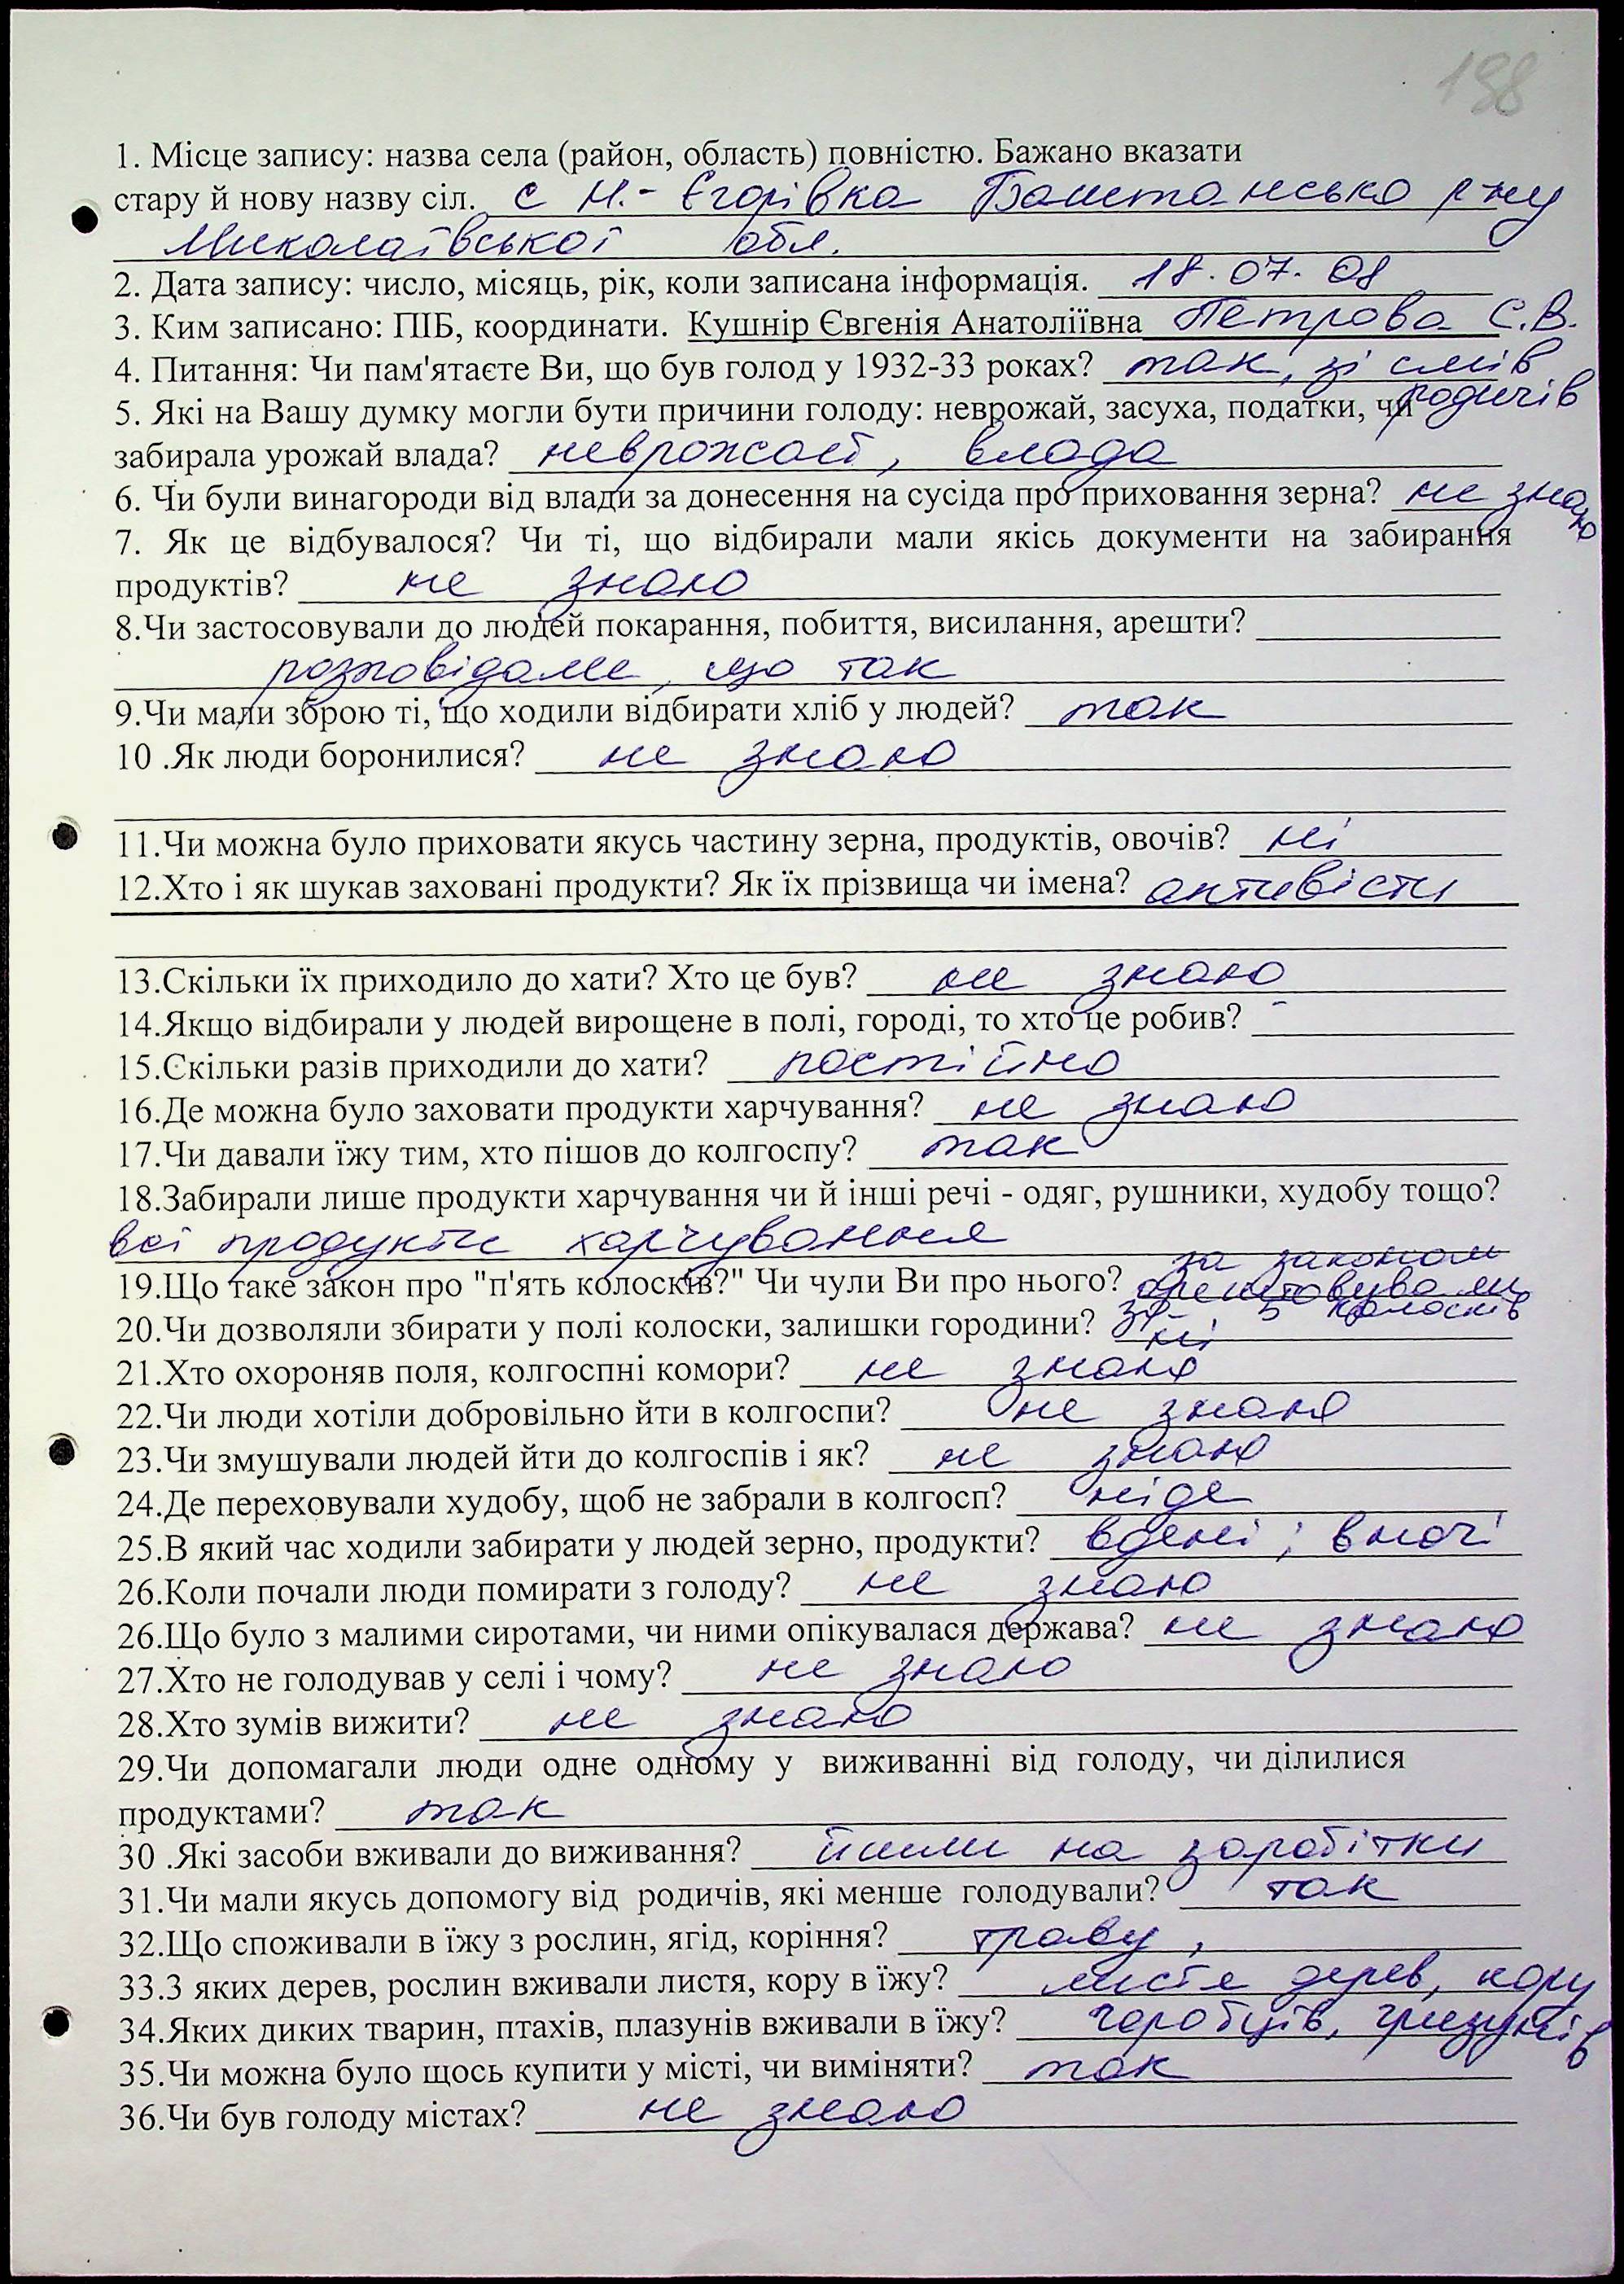 198
1. Місце запису: назва села (район, область) повністю. Бажано вказати
стару й нову назву сіл. с Н.- Єгорівка Баштансько р-ну
Миколаївської обл.
2. Дата запису: число, місяць, рік, коли записана інформація. 18.07.08
3. Ким записано: ПІБ, координати. Кушнір Євгенія Анатоліївна Петрова С.В.
4. Питання: Чи пам'ятаєте Ви, що був голод у 1932-33 роках? так, зі слів
родичів
5. Які на Вашу думку могли бути причини голоду: неврожай, засуха, податки, чи
забирала урожай влада? неврожай, влада
6. Чи були винагороди від влади за донесення на сусіда про приховання зерна? не знаю
7. Як це відбувалося? Чи ті, що відбирали мали якісь документи на забирання
продуктів? не знаю
8.Чи застосовували до людей покарання, побиття, висилання, арешти?
розповідали, що так
9.Чи мали зброю ті, що ходили відбирати хліб у людей? так
10 .Як люди боронилися? не знаю
11.Чи можна було приховати якусь частину зерна, продуктів, овочів? ні
12.Хто і як шукав заховані продукти? Як їх прізвища чи імена? активісти
13.Скільки їх приходило до хати? Хто це був? не знаю
14.Якщо відбирали у людей вирощене в полі, городі, то хто це робив? -
15.Скільки разів приходили до хати? постійно
16.Де можна було заховати продукти харчування? не знаю
17.Чи давали їжу тим, хто пішов до колгоспу? так
18.Забирали лише продукти харчування чи й інші речі - одяг, рушники, худобу тощо?
всі продукти харчування
19.Що таке закон про "п'ять колосків?" Чи чули Ви про нього? за законом
арештовували
за 5 колосків
20.Чи дозволяли збирати у полі колоски, залишки городини? ні
21.Хто охороняв поля, колгоспні комори? не знаю
22.Чи люди хотіли добровільно йти в колгоспи? не знаю
23.Чи змушували людей йти до колгоспів і як? не знаю
24.Де переховували худобу, щоб не забрали в колгосп? ніде
25.В який час ходили забирати у людей зерно, продукти? вдені ; вночі
26.Коли почали люди помирати з голоду? не знаю
26.Що було з малими сиротами, чи ними опікувалася держава? не знаю
27.Хто не голодував у селі і чому? не знаю
28.Хто зумів вижити? не знаю
29.Чи допомагали люди одне одному у виживанні від голоду, чи ділилися
продуктами? так
30 .Які засоби вживали до виживання? йшли на заробітки
31.Чи мали якусь допомогу від родичів, які менше голодували? так
32.Що споживали в їжу з рослин, ягід, коріння? траву ,
33.З яких дерев, рослин вживали листя, кору в їжу? листя дерев, кору
34.Яких диких тварин, птахів, плазунів вживали в їжу? горобців, гризунів
35.Чи можна було щось купити у місті, чи виміняти? так
36.Чи був голоду містах? не знаю